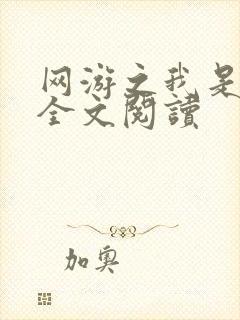 网游之我是
全文閱讀
加奥